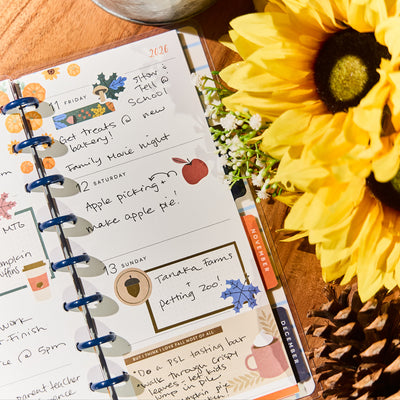 2026
11 FRIDAY
Show +
Tell @
School!
Get treats @ new
bakery!
Family Movie night
12 SATURDAY
Apple picking +
make apple pie!
13 SUNDAY
Tanaka Farms
+
petting Zoo!
BUT I THINK I LOVE FALL MOST OF ALL
Do a PSL tasting bar
walk through crispy
leaves + let kids
jump in pile
pumpkin
MTG
@ 5pm
parent teacher
NOVEMBER
DECEMBER